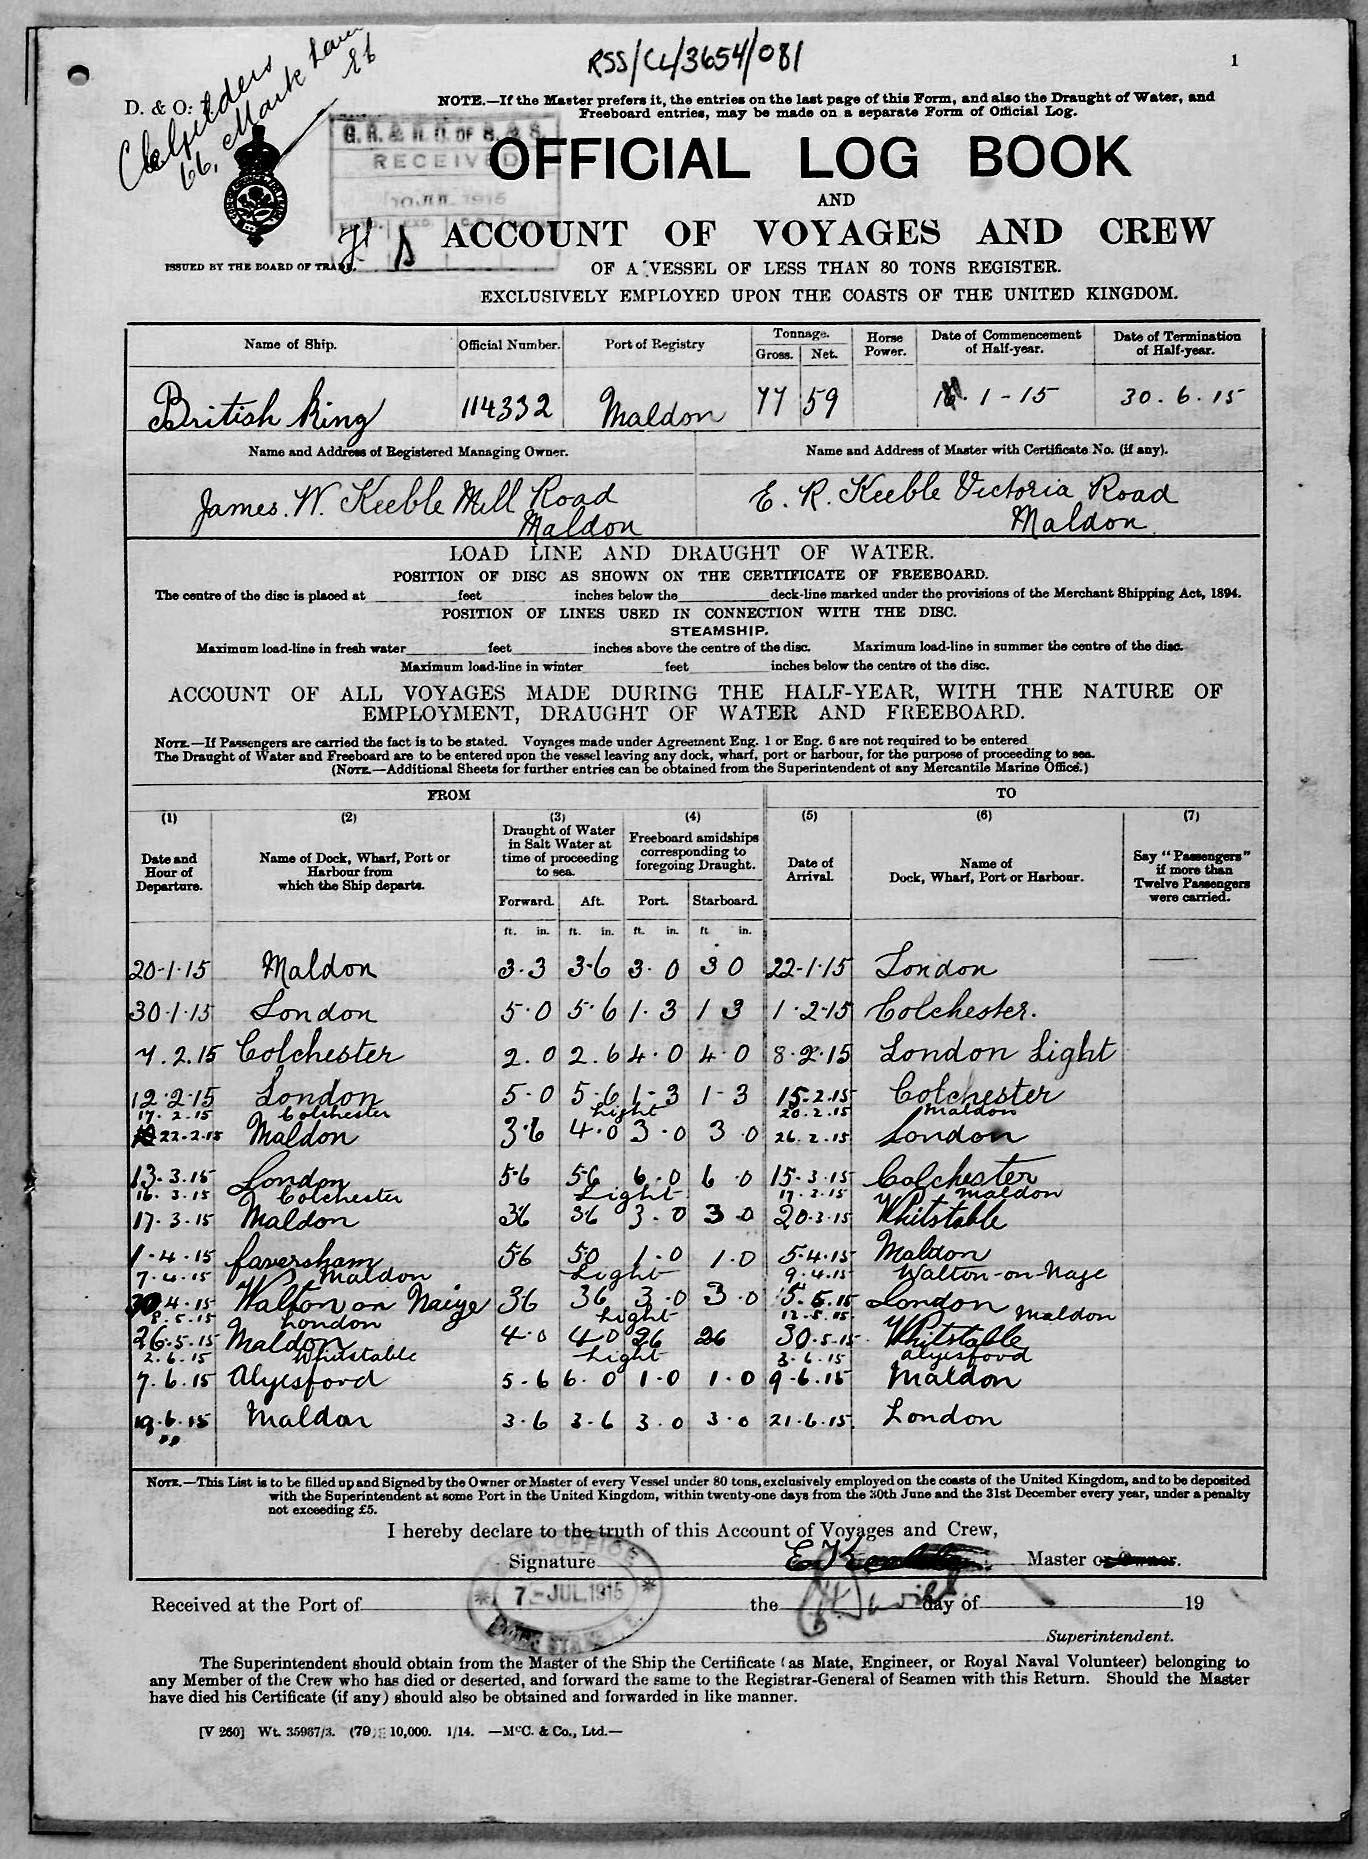 RSS/CL/3654/081
1
D. & O.
66, Mark Lane
NOTE.—If the Master prefers it, the entries on the last page of this Form, and also the Draught of Water, and
Freeboard entries, may be made on a separate Form of Official Log.
G. R. & R. O. OF S. & S.
RECEIVED
JUL 1915
OFFICIAL LOG BOOK
AND
ACCOUNT OF VOYAGES AND CREW
ISSUED BY THE BOARD OF TRADE.
OF A VESSEL OF LESS THAN 80 TONS REGISTER.
EXCLUSIVELY EMPLOYED UPON THE COASTS OF THE UNITED KINGDOM.
Name of Ship. Official Number. Port of Registry Tonnage. Gross. Net. Horse Power. Date of Commencement of Half-year. Date of Termination of Half-year.
British King 114332 Maldon 77 59 1-15 30.6.15
Name and Address of Registered Managing Owner. Name and Address of Master with Certificate No. (if any).
James. W. Keeble Mill Road E. R. Keeble Victoria Road
Maldon Maldon
LOAD LINE AND DRAUGHT OF WATER.
POSITION OF DISC AS SHOWN ON THE CERTIFICATE OF FREEBOARD.
The centre of the disc is placed at feet inches below the deck-line marked under the provisions of the Merchant Shipping Act, 1894.
POSITION OF LINES USED IN CONNECTION WITH THE DISC.
STEAMSHIP.
Maximum load-line in fresh water feet inches above the centre of the disc. Maximum load-line in summer the centre of the disc.
Maximum load-line in winter feet inches below the centre of the disc.
ACCOUNT OF ALL VOYAGES MADE DURING THE HALF-YEAR, WITH THE NATURE OF
EMPLOYMENT, DRAUGHT OF WATER AND FREEBOARD.
NOTE.—If Passengers are carried the fact is to be stated. Voyages made under Agreement Eng. 1 or Eng. 6 are not required to be entered
The Draught of Water and Freeboard are to be entered upon the vessel leaving any dock, wharf, port or harbour, for the purpose of proceeding to sea.
(NOTE.—Additional Sheets for further entries can be obtained from the Superintendent of any Mercantile Marine Office.)
FROM TO
(1) (2) (3) (4) (5) (6) (7)
Date and Hour of Departure. Name of Dock, Wharf, Port or Harbour from which the Ship departs. Draught of Water in Salt Water at time of proceeding to sea. Freeboard amidships corresponding to foregoing Draught. Date of Arrival. Name of Dock, Wharf, Port or Harbour. Say "Passengers" if more than Twelve Passengers were carried.
Forward. Aft. Port. Starboard.
ft. in. ft. in. ft. in. ft. in.
20-1-15 Maldon 3.3 3-6 3.0 3 0 22-1-15 London —
30-1-15 London 5.0 5.6 1.3 1 3 1.2-15 Colchester.
7.2.15 Colchester 2.0 2.6 4.0 4.0 8.2.15 London Light
12.2.15 London 5.0 5-6 1-3 1-3 15-2.15 Colchester
17.2.15 Colchester Light 20.2.15 Maldon
22-2-15 Maldon 3.6 4.0 3.0 3.0 26.2.15 London
13.3.15 London 5-6 56 6.0 6.0 15-3.15 Colchester
16.3.15 Colchester Light 17.3.15 Maldon
17.3.15 Maldon 36 36 3.0 3.0 20-3-15 Whitstable
1-4.15 faversham 56 50 1.0 1.0 5-4.15 Maldon
7-4.15 Maldon Light 9.4.15 Walton-on-Naze
30 4.15 Walton on Naize 36 36 3.0 3.0 5.5.15 London
8.5.15 London Light 12-5.15 Maldon
26.5.15 Maldon 4.0 40 26 26 30.5-15 Whitstable
2.6.15 Whitstable Light 3.6.15 alyesford
7.6.15 Alyesford 5-6 6.0 1.0 1.0 9-6.15 Maldon
19.6.15 Maldon 3.6 3-6 3.0 3.0 21-6.15 London
NOTE.—This List is to be filled up and Signed by the Owner or Master of every Vessel under 80 tons, exclusively employed on the coasts of the United Kingdom, and to be deposited
with the Superintendent at some Port in the United Kingdom, within twenty-one days from the 30th June and the 31st December every year, under a penalty
not exceeding £5.
I hereby declare to the truth of this Account of Voyages and Crew,
Signature Master or Owner.
7-JUL.1915
Received at the Port of the day of 19
Superintendent.
The Superintendent should obtain from the Master of the Ship the Certificate (as Mate, Engineer, or Royal Naval Volunteer) belonging to
any Member of the Crew who has died or deserted, and forward the same to the Registrar-General of Seamen with this Return. Should the Master
have died his Certificate (if any) should also be obtained and forwarded in like manner.
[V 260] Wt. 35937/3. (79) 10,000. 1/14. —McC. & Co., Ltd.—